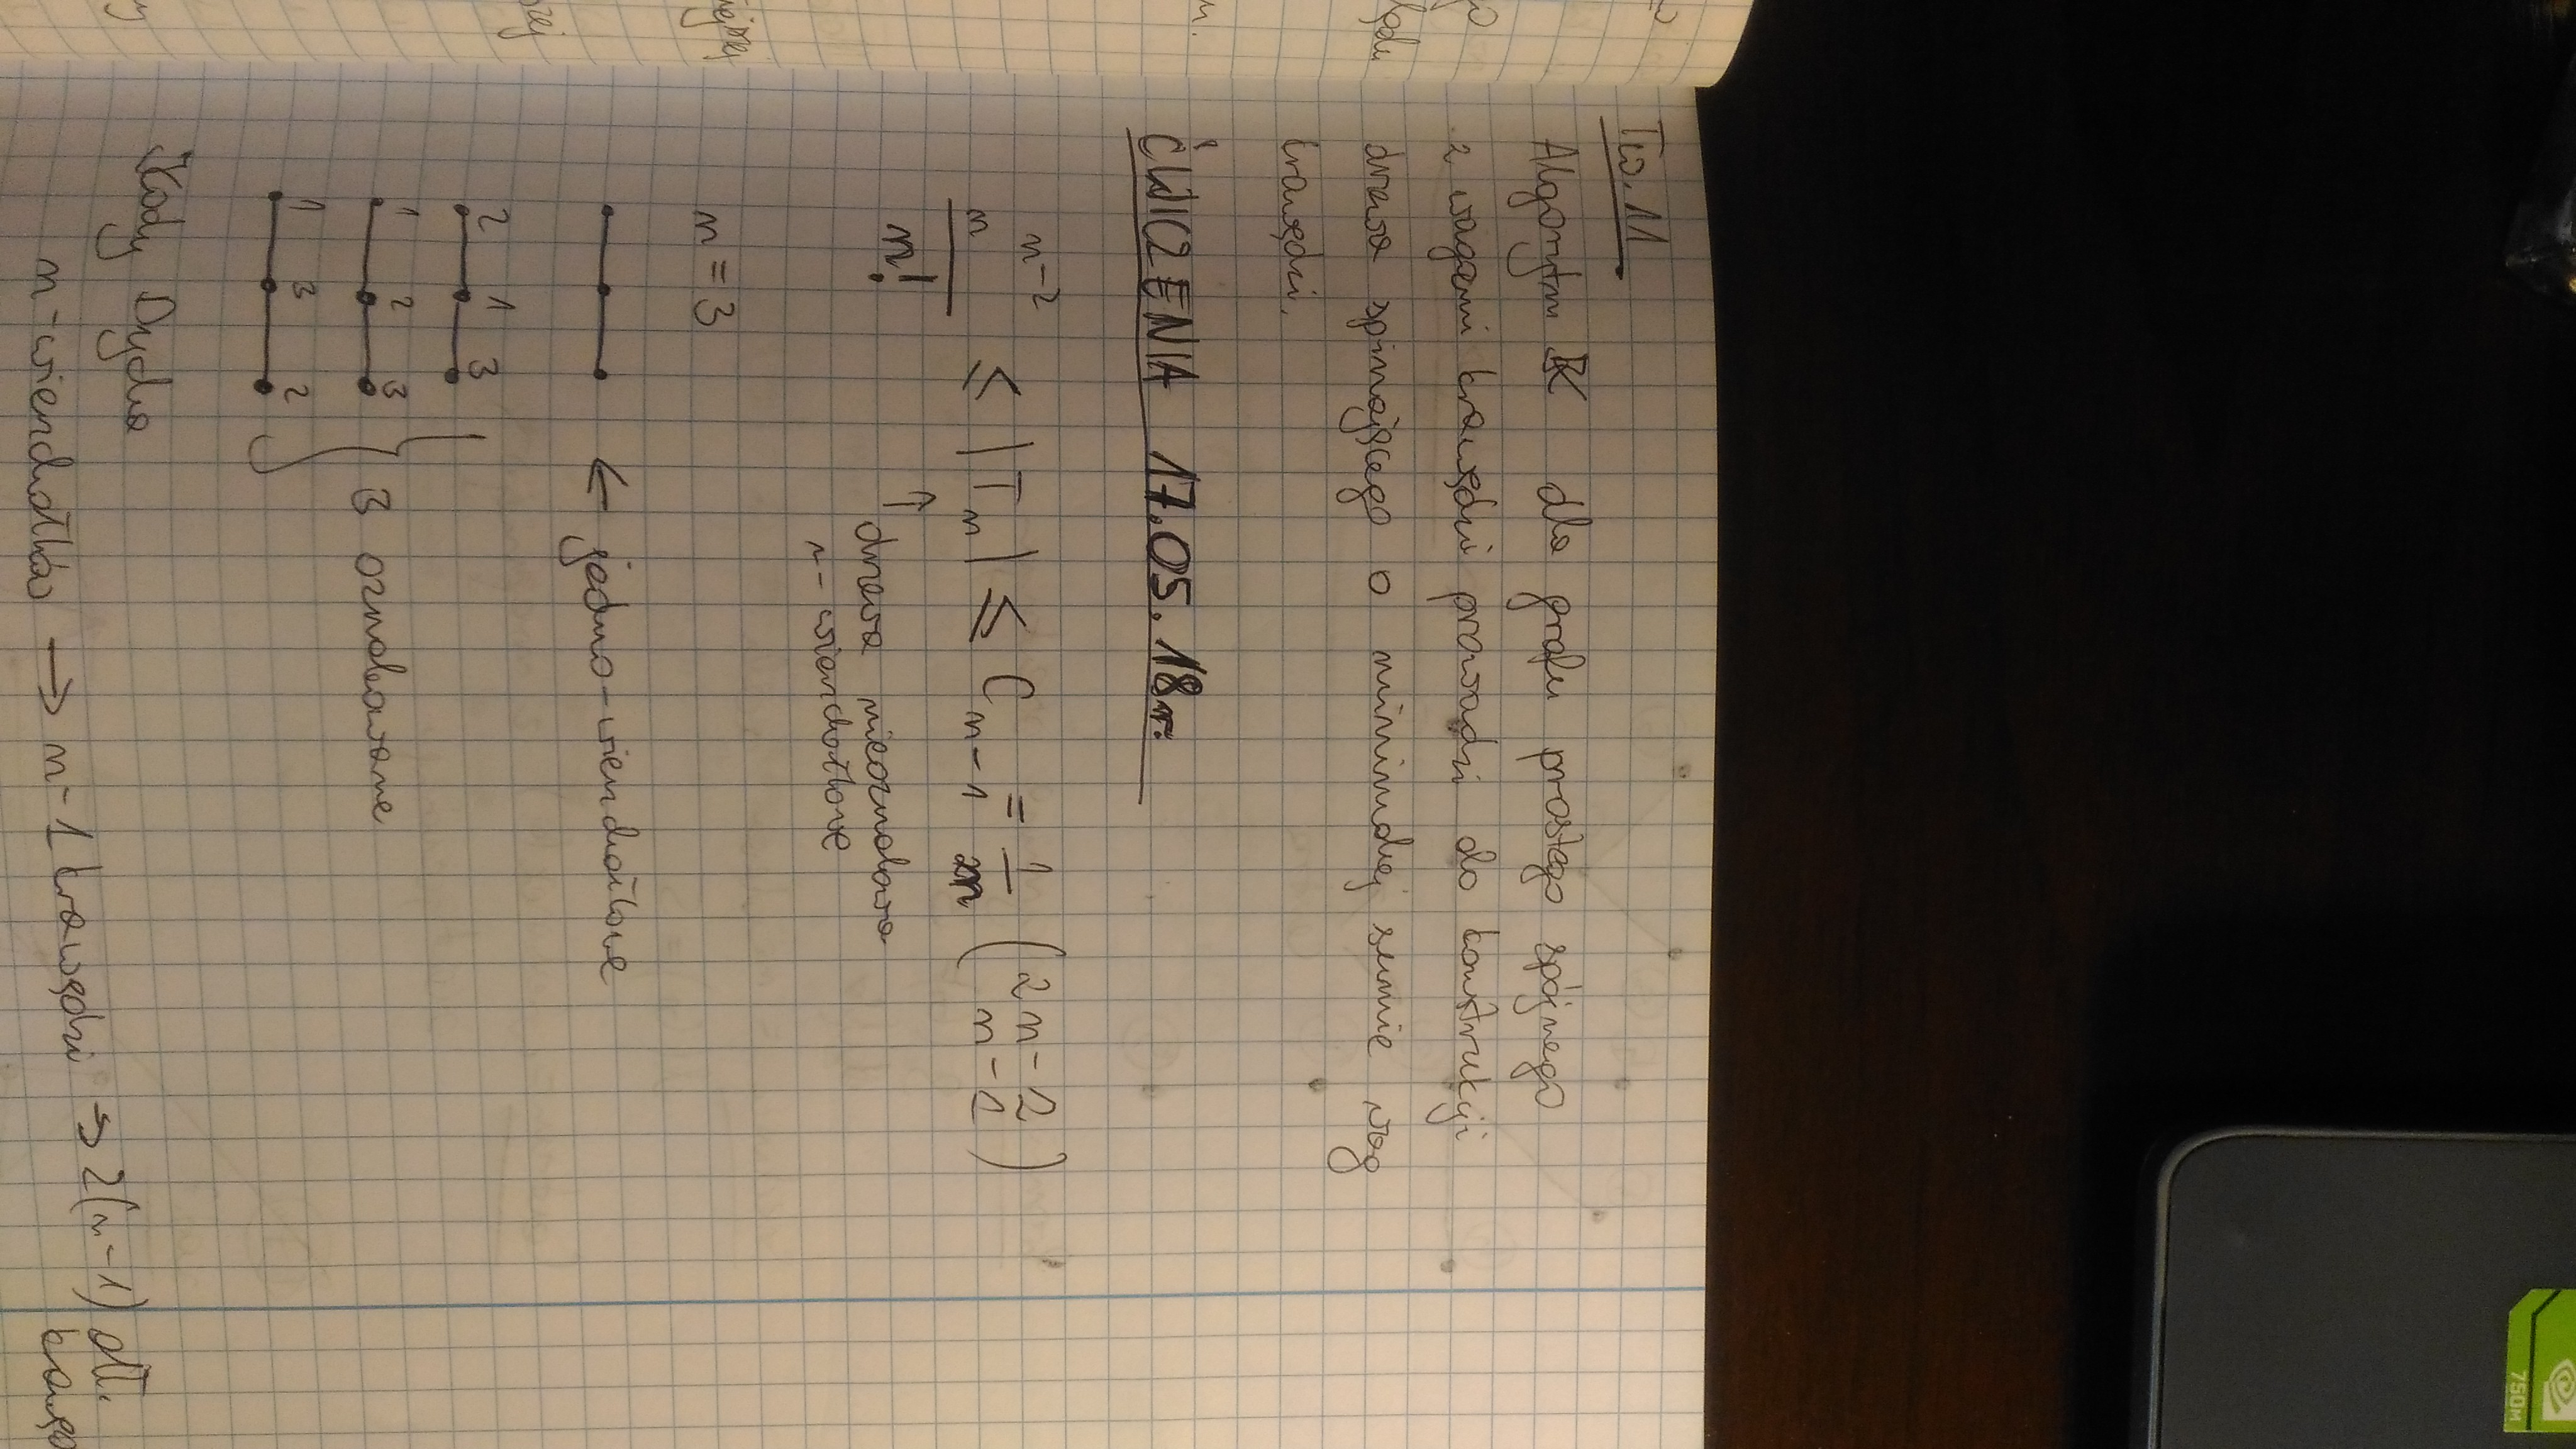 750M
Tw. 11
Algorytm K dla grafu prostego spójnego
z wagami krawędzi prowadzi do konstrukcji
drzewa spinającego o minimalnej sumie wag
krawędzi.
ĆWICZENIA 17.05.18r.
n^{n-2} / n! ≤ |T_n| ≤ C_{n-1} = 1/n (2n-2 n-1)
↑ drzewa nieoznakowa
n-wierzchołkowe
n = 3
← jedno-wierzchołkowe
2 1 3
1 2 3
3 oznakowane
1 3 2
Kody Dycka
n-wierzchołków → n-1 krawędzi → 2(n-1) dł.